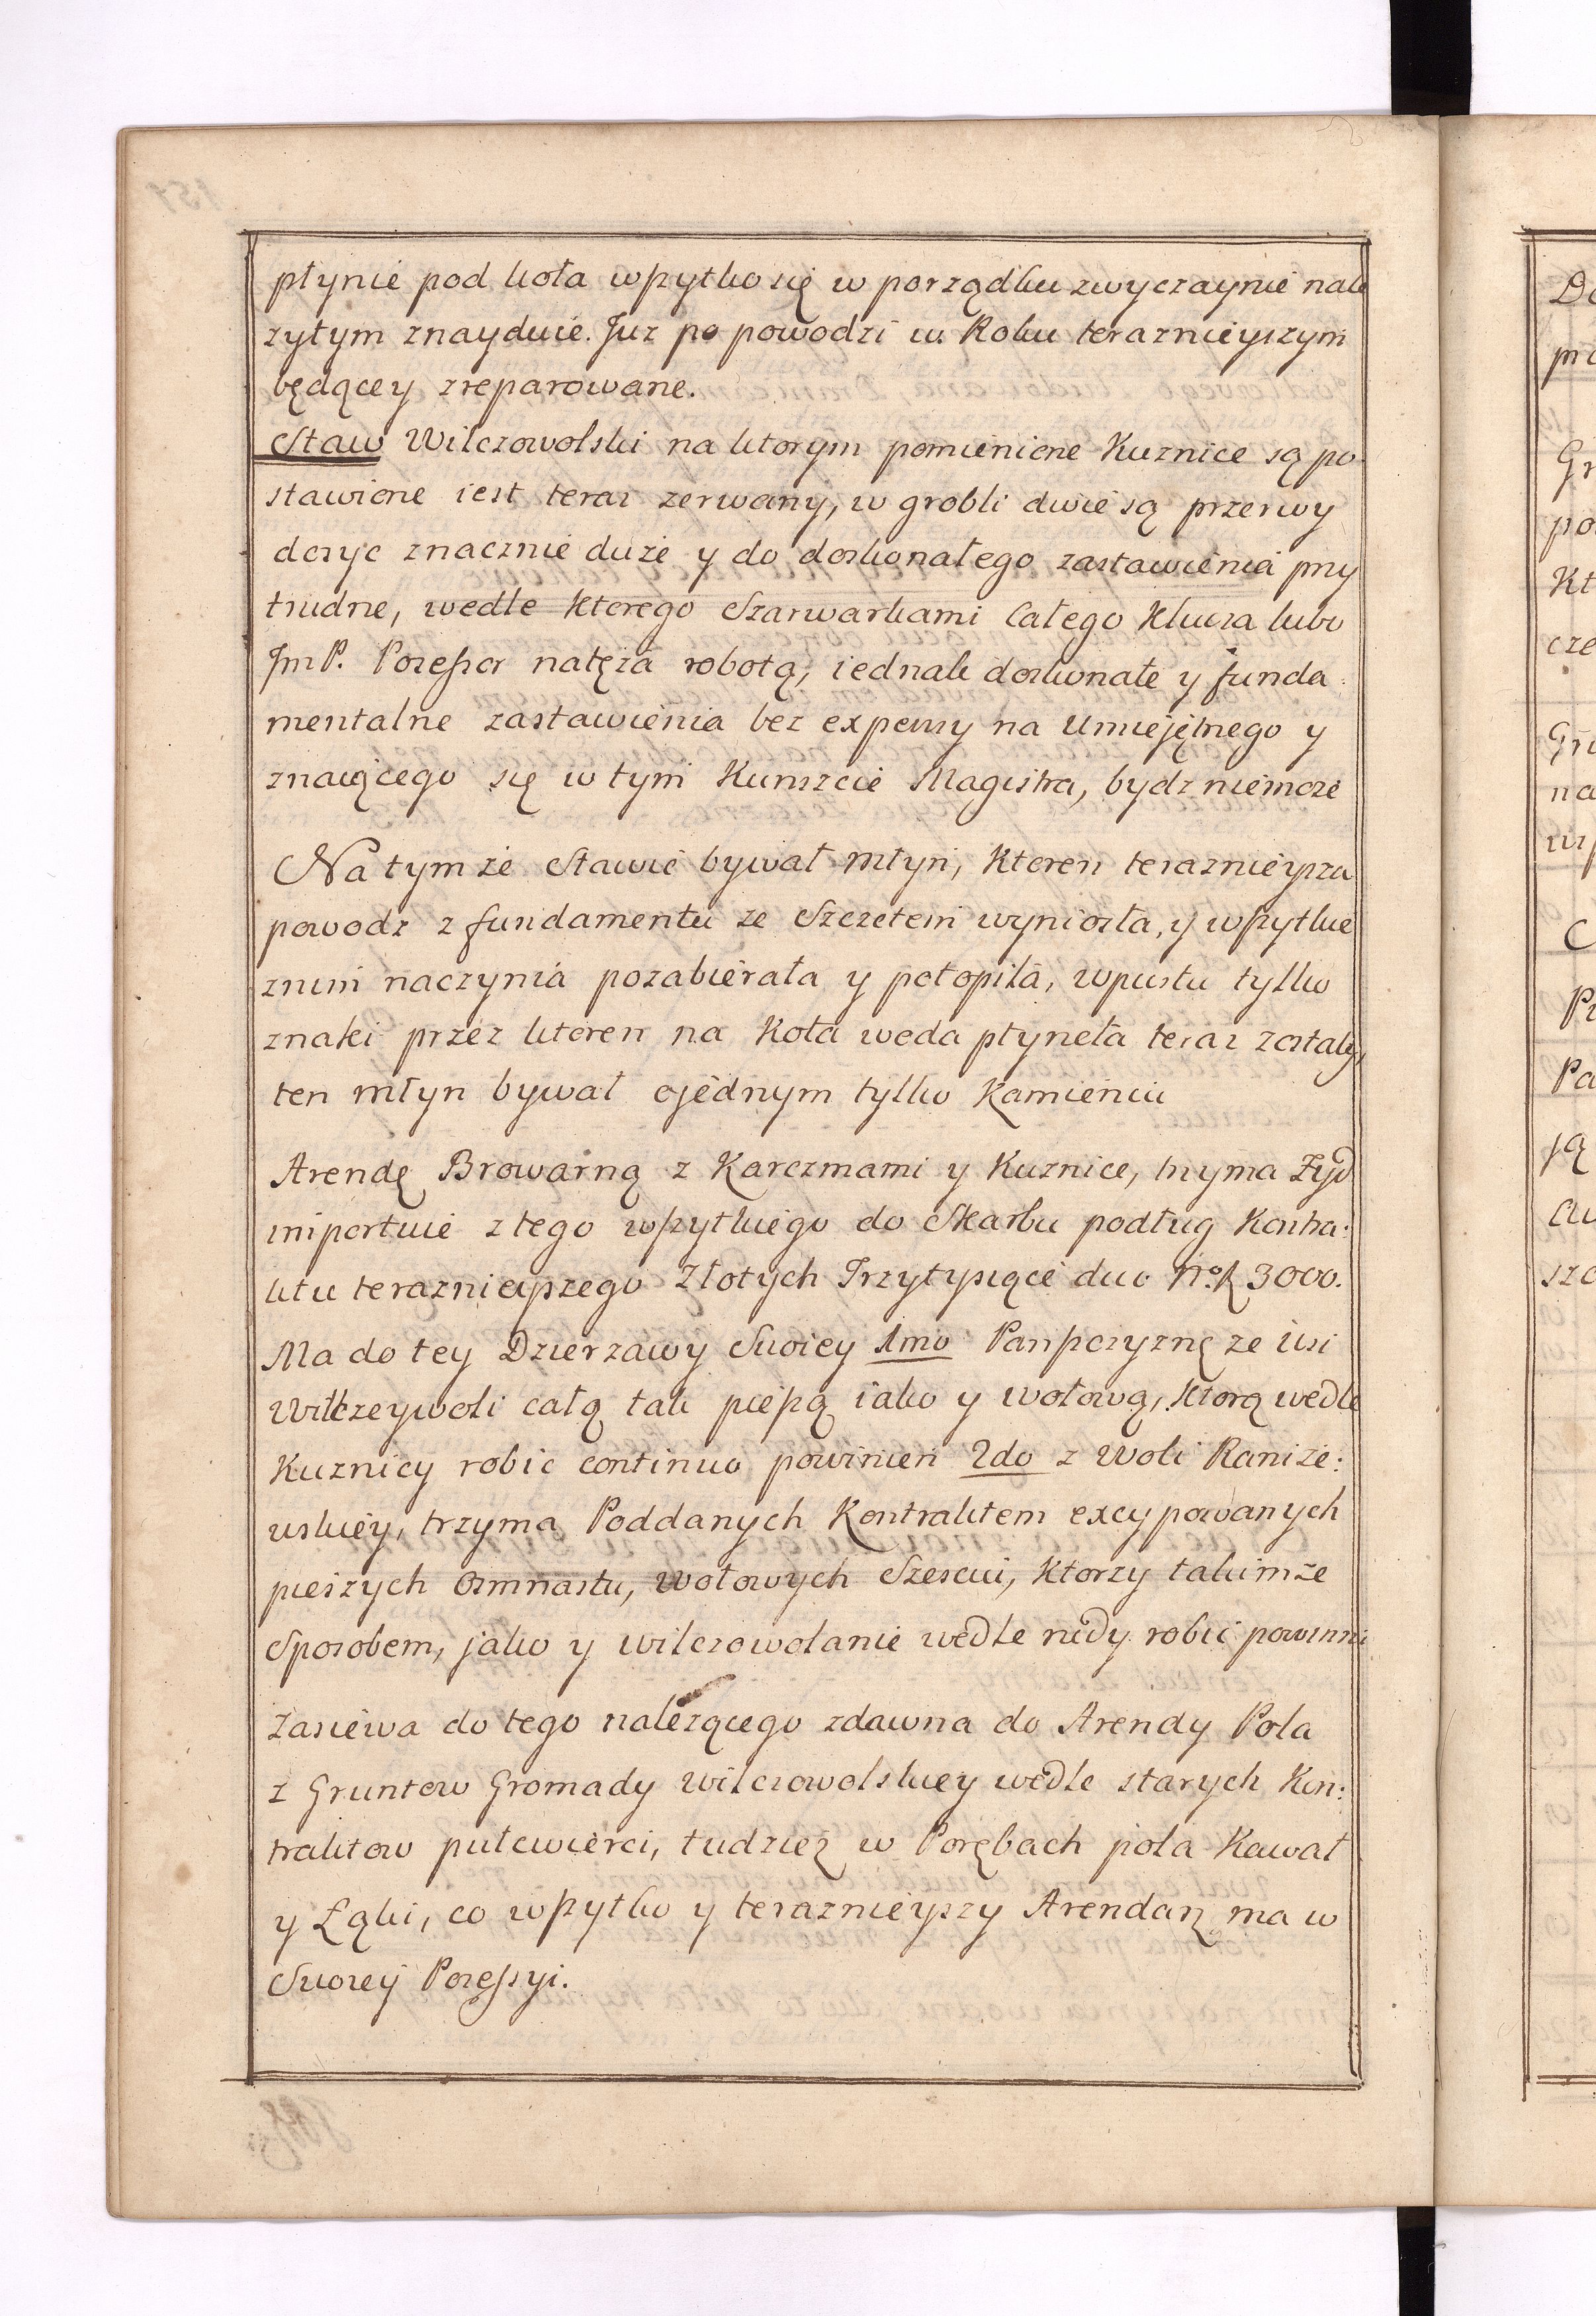 płynie pod koła wszytko się w porządku zwyczaynie nale
zytym znayduie. Juz po powodzi w Roku teraznieyszym
będącey zreparowane.
Staw Wilczowolski na ktorym pomienione Kuznice są po
stawione iest teraz zerwany, w grobli dwie są przerwy
dosyc znacznie duże y do doskonałego zastawienia przy
trudne, wedle ktorego Szarwarkami Całego Klucza lubo
JmP. Possessor natęża robotą, iednak doskonałe y funda:
mentalne zastawienia bez expensy na Umiejętnego y
znaiącego się w tym Kunszcie Magistra, bydz niemoże
Na tym że Stawie bywał młyn, Ktoren teraznieysza
powodz z fundamentu ze Szczetem wyniosła, y wszytkie
znim naczynia pozabierała y potopiła, wpustu tylko
znaki przez ktoren na Koła woda płyneła teraz zostały,
ten młyn bywał ojednym tylko Kamieniu
Arendę Browarną z Karczmami y Kuznice, trzyma Zyd
importuie z tego wszytkiego do Skarbu podług Kontra:
ktu teraznieyszego Złotych Trzytysiące duo No. 3000.
Ma do tey Dzierzawy Swoiey 1mo Panszczyznę ze wsi
Wilczeywoli całą tak pieszą iako y wołową, Ktorą wedle
Kuznicy robic continuo powinien 2do z Woli Raniże:
wskiey, trzyma Poddanych Kontraktem excypowanych
pieszych Osmnastu, wołowych Szesciu, Ktorzy takimże
Sposobem, jako y wilczowolanie wedle rudy robic powinni
Zasiewa do tego należącego zdawna do Arendy Pola
z Gruntow Gromady wilczowolskiey wedle starych Kon:
traktow pułcwierci, tudzież w Porębach pola Kawał
y Łąki, co wszytko y teraznieyszy Arendarz ma w
Swoiey Possessyi.